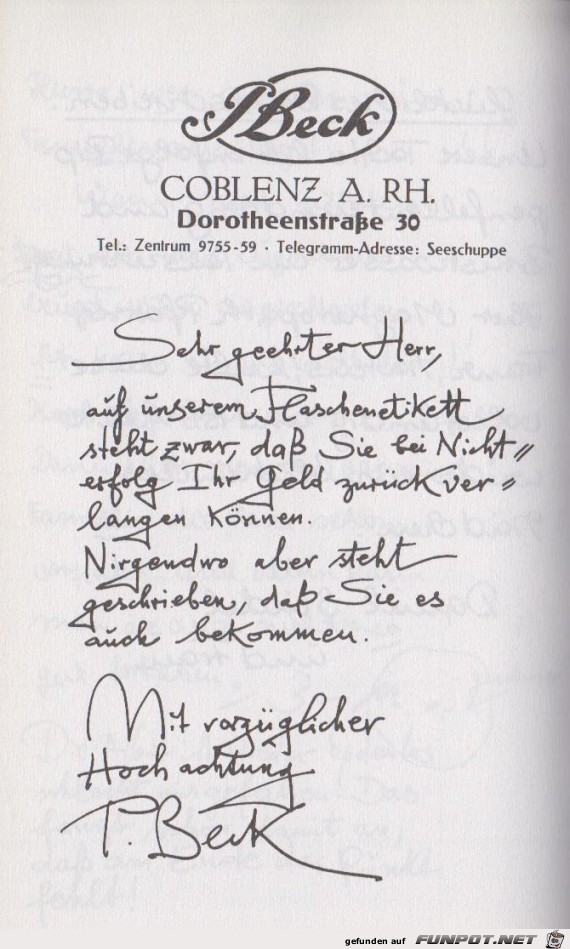 P Beck
COBLENZ A. RH.
Dorotheenstraße 30
Tel.: Zentrum 9755-59 · Telegramm-Adresse: Seeschuppe
Sehr geehrter Herr,
auf unserem Flaschenetikett
steht zwar, daß Sie bei Nicht=
erfolg Ihr Geld zurück ver=
langen können.
Nirgendwo aber steht
geschrieben, daß Sie es
auch bekommen.
Mit vorzüglicher
Hochachtung
P. Beck
gefunden auf FUNPOT.NET